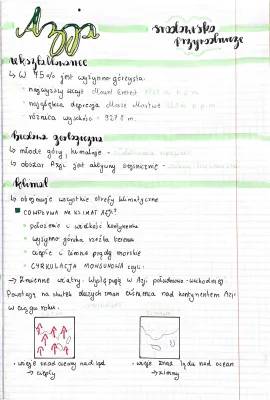 Azja
środowisko
przyrodnicze
ukształtowanie
↳ W 75% jest wyżynno górzysta.
• najwyższy szczyt Mount Everest
• największa depresja Morze Martwe
• różnica wysokości - 9278 m.
budowa geologiczna
↳ młode góry, himalaje -
↳ obszar Azji jest aktywny sejsmicznie -
klimat
↳ obejmuje wszystkie strefy klimatyczne
CO WPŁYWA NA KLIMAT AZJI?
• położenie i wielkość kontynentu
• wyżynno górska rzeźba terenu
• ciepłe i zimne prądy morskie
• CYRKULACJA MONSUNOWA czyli:
→ Zmienne wiatry. Występują w Azji południowo-wschodniej.
Powstają na skutek dużych zmian ciśnienia nad kontynentem Azji
w ciągu roku.
• wieje znad oceanu nad ląd
→ ciepły
• wieje znad lądu nad ocean
→ zimny